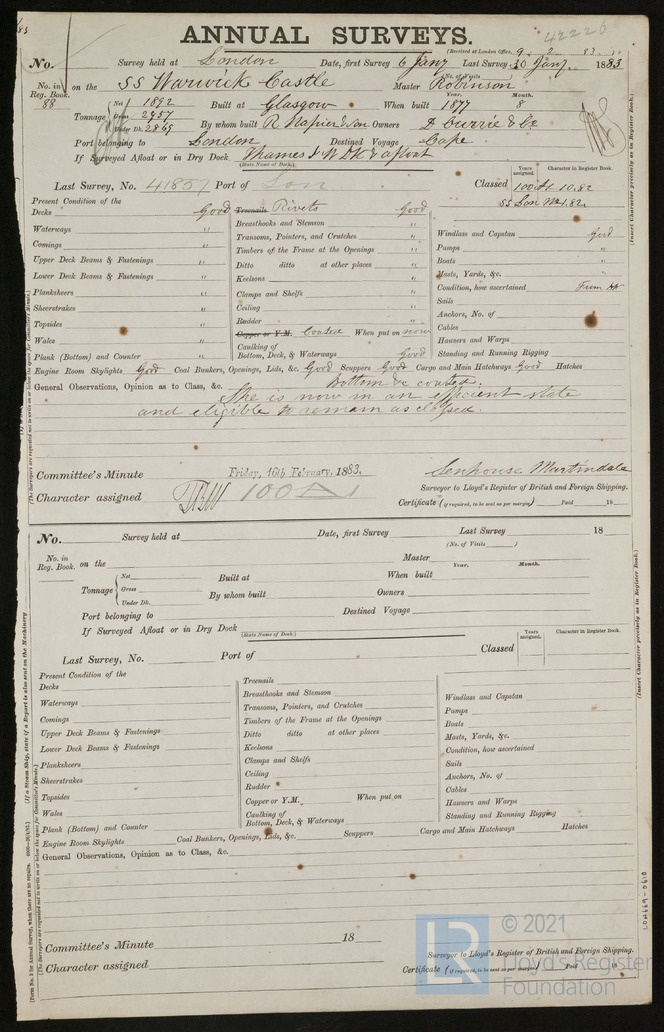 42226
ANNUAL SURVEYS.
(Received at London Office, 9. 2. 83.)
No. Survey held at London Date, first Survey 6 Jany Last Survey 30 Jany. 1883
(No. of Visits)
No. in Reg. Book. on the SS Warwick Castle Master Robinson
88
Tonnage Net 1892 Gross 2957 Under Dk. 2869
Built at Glasgow When built Year. 1877 Month. 8
By whom built R Napier & Son Owners D Currie & Co
Port belonging to London Destined Voyage Cape
If Surveyed Afloat or in Dry Dock Thames & W DK & afloat
(State Name of Dock.)
Last Survey, No. 41857 Port of Lon
Classed Years assigned. Character in Register Book.
100A1. 10.82
Present Condition of the
Decks Good
Waterways "
Comings "
Upper Deck Beams & Fastenings "
Lower Deck Beams & Fastenings "
Planksheers "
Sheerstrakes "
Topsides "
Wales "
Plank (Bottom) and Counter "
Treenails Rivets Good
Breasthooks and Stemson "
Transoms, Pointers, and Crutches "
Timbers of the Frame at the Openings "
Ditto ditto at other places "
Keelsons "
Clamps and Shelfs "
Ceiling "
Rudder "
Copper or Y.M. Coated When put on now
Caulking of Bottom, Deck, & Waterways Good
Windlass and Capstan Good
Pumps "
Boats "
Masts, Yards, &c. "
Condition, how ascertained From
Sails
Anchors, No. of
Cables
Hawsers and Warps
Standing and Running Rigging
Engine Room Skylights Good Coal Bunkers, Openings, Lids, &c. Good Scuppers Good Cargo and Main Hatchways Good Hatches
General Observations, Opinion as to Class, &c. Bottom &c coated.
She is now in an efficient state
and eligible to remain as classed.
Committee's Minute Friday, 16th February, 1883.
Character assigned 100A1
Senhouse Martindale
Surveyor to Lloyd's Register of British and Foreign Shipping.
Certificate (if required, to be sent as per margin) Paid 18
No. Survey held at Date, first Survey Last Survey 18
(No. of Visits)
No. in Reg. Book. on the Master
Tonnage Net Gross Under Dk.
Built at When built Year. Month.
By whom built Owners
Port belonging to Destined Voyage
If Surveyed Afloat or in Dry Dock
(State Name of Dock.)
Last Survey, No. Port of
Classed Years assigned. Character in Register Book.
Present Condition of the
Decks
Waterways
Comings
Upper Deck Beams & Fastenings
Lower Deck Beams & Fastenings
Planksheers
Sheerstrakes
Topsides
Wales
Plank (Bottom) and Counter
Treenails
Breasthooks and Stemson
Transoms, Pointers, and Crutches
Timbers of the Frame at the Openings
Ditto ditto at other places
Keelsons
Clamps and Shelfs
Ceiling
Rudder
Copper or Y.M. When put on
Caulking of Bottom, Deck, & Waterways
Windlass and Capstan
Pumps
Boats
Masts, Yards, &c.
Condition, how ascertained
Sails
Anchors, No. of
Cables
Hawsers and Warps
Standing and Running Rigging
Engine Room Skylights Coal Bunkers, Openings, Lids, &c. Scuppers Cargo and Main Hatchways Hatches
General Observations, Opinion as to Class, &c.
Committee's Minute 18
Character assigned
Surveyor to Lloyd's Register of British and Foreign Shipping.
Certificate (if required, to be sent as per margin) Paid 18
(Insert Character precisely as in Register Book.)
(Insert Character precisely as in Register Book.)
(If a Steam Ship, state if a Report is also sent on the Machinery
(The Surveyors are requested not to write on or below the space for Committee's Minute.)
LON669-0610
LR
© 2021
Lloyd's Register
Foundation